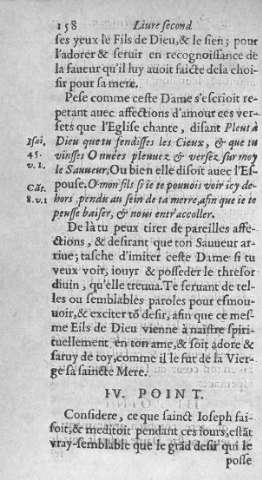 158 Liure second
ses yeux le Fils de Dieu, & le sien; pour
l'adorer & seruir en recognoissance de
la faueur qu'il luy auoit faicte de la choi-
sir pour sa mere.
Pese comme ceste Dame s'escrioit re-
petant auec affections d'amour ces ver-
sets que l'Eglise chante, disant Pleut à
Isai, Dieu que tu fendisses les Cieux, & que tu
45. vinsses O nuées pleuuez & versez sur moy
v. 1. le Sauueur, Ou bien elle disoit auec l'Es-
Cāt. pouse. O mon fils si ie te pouuois voir icy de-
8. v. 1 hors, pendu au sein de ta merre, afin que ie te
peusse baiser, & nous entr'accoller.
De là tu peux tirer de pareilles affe-
ctions, & desirant que ton Sauueur ar-
riue; tasche d'imiter ceste Dame si tu
veux voir, iouyr & posseder le thresor
diuin, qu'elle treuua. Te seruant de tel-
les ou semblables paroles pour esmou-
uoir, & exciter tō desir, afin que ce mes-
me Fils de Dieu vienne à naistre spiri-
tuellement en ton ame, & soit adoré &
seruy de toy, comme il le fut de la Vier-
ge sa saincte Mere.
IV. POINT.
Considere, ce que sainct Ioseph fai-
soit, & meditoit pendant ces iours, estāt
vray-semblable que le grād desir qui le
posse